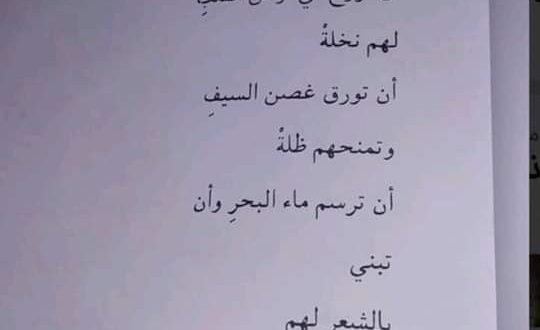 لهم نخلةْ
أن تورق غصن السيفِ
وتمنحهم ظلةْ
أن ترسم ماء البحرِ وأن
تبني
بالشعر لهم